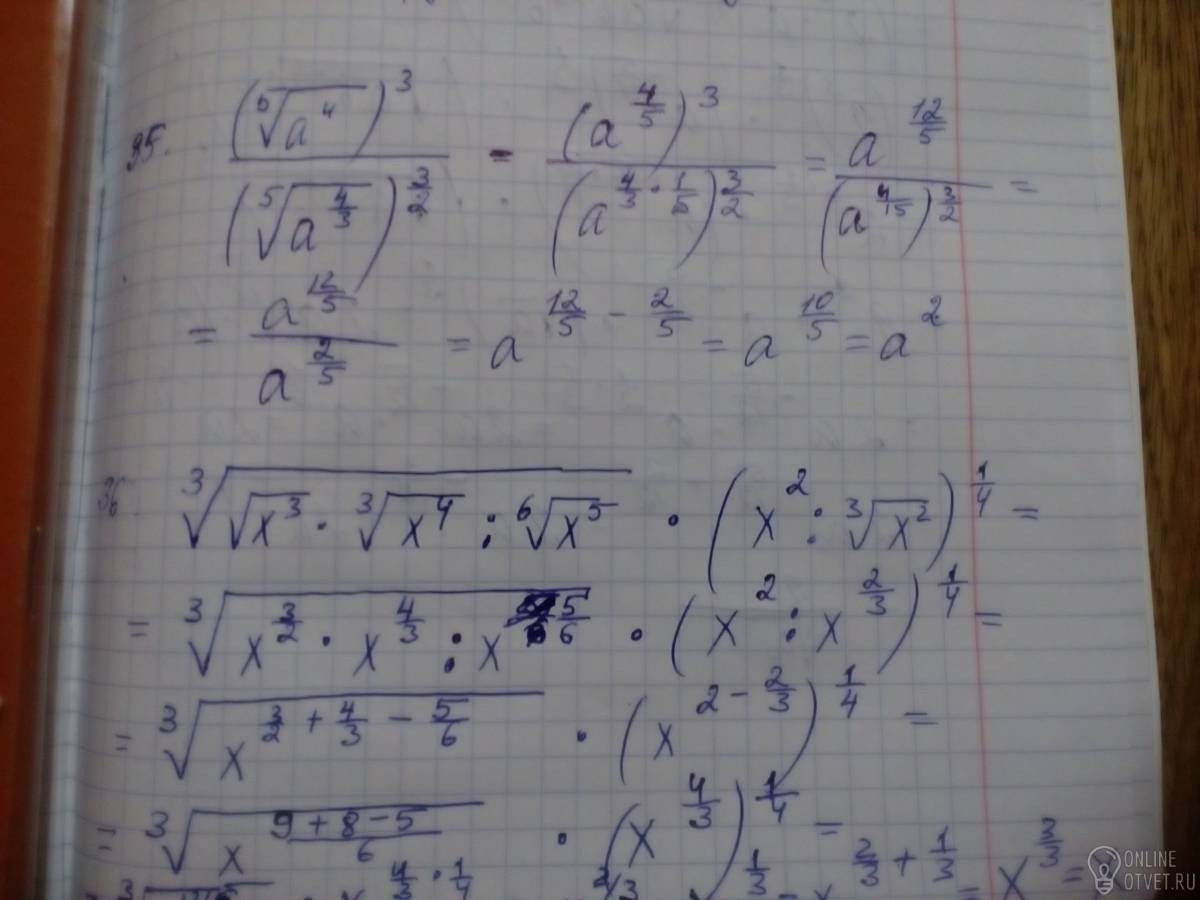 95. (⁵√a⁴)³ / (⁵√a^(4/3))^(3/2) = (a^(4/5))³ / (a^(4/3 · 1/5))^(3/2) = a^(12/5) / (a^(4/15))^(3/2) =
= a^(12/5) / a^(2/5) = a^(12/5 - 2/5) = a^(10/5) = a²
96. ³√(√x³ · ³√x⁴ : ⁶√x⁵) · (x² : ³√x²)^(1/4) =
= ³√(x^(3/2) · x^(4/3) : x^(5/6)) · (x² : x^(2/3))^(1/4) =
= ³√(x^(3/2 + 4/3 - 5/6)) · (x^(2 - 2/3))^(1/4) =
= ³√(x^((9+8-5)/6)) · (x^(4/3))^(1/4) =
x^(4/3 · 1/4) x^(1/3) = x^(2/3 + 1/3) = x^(3/3) =
ONLINE
OTVET.RU